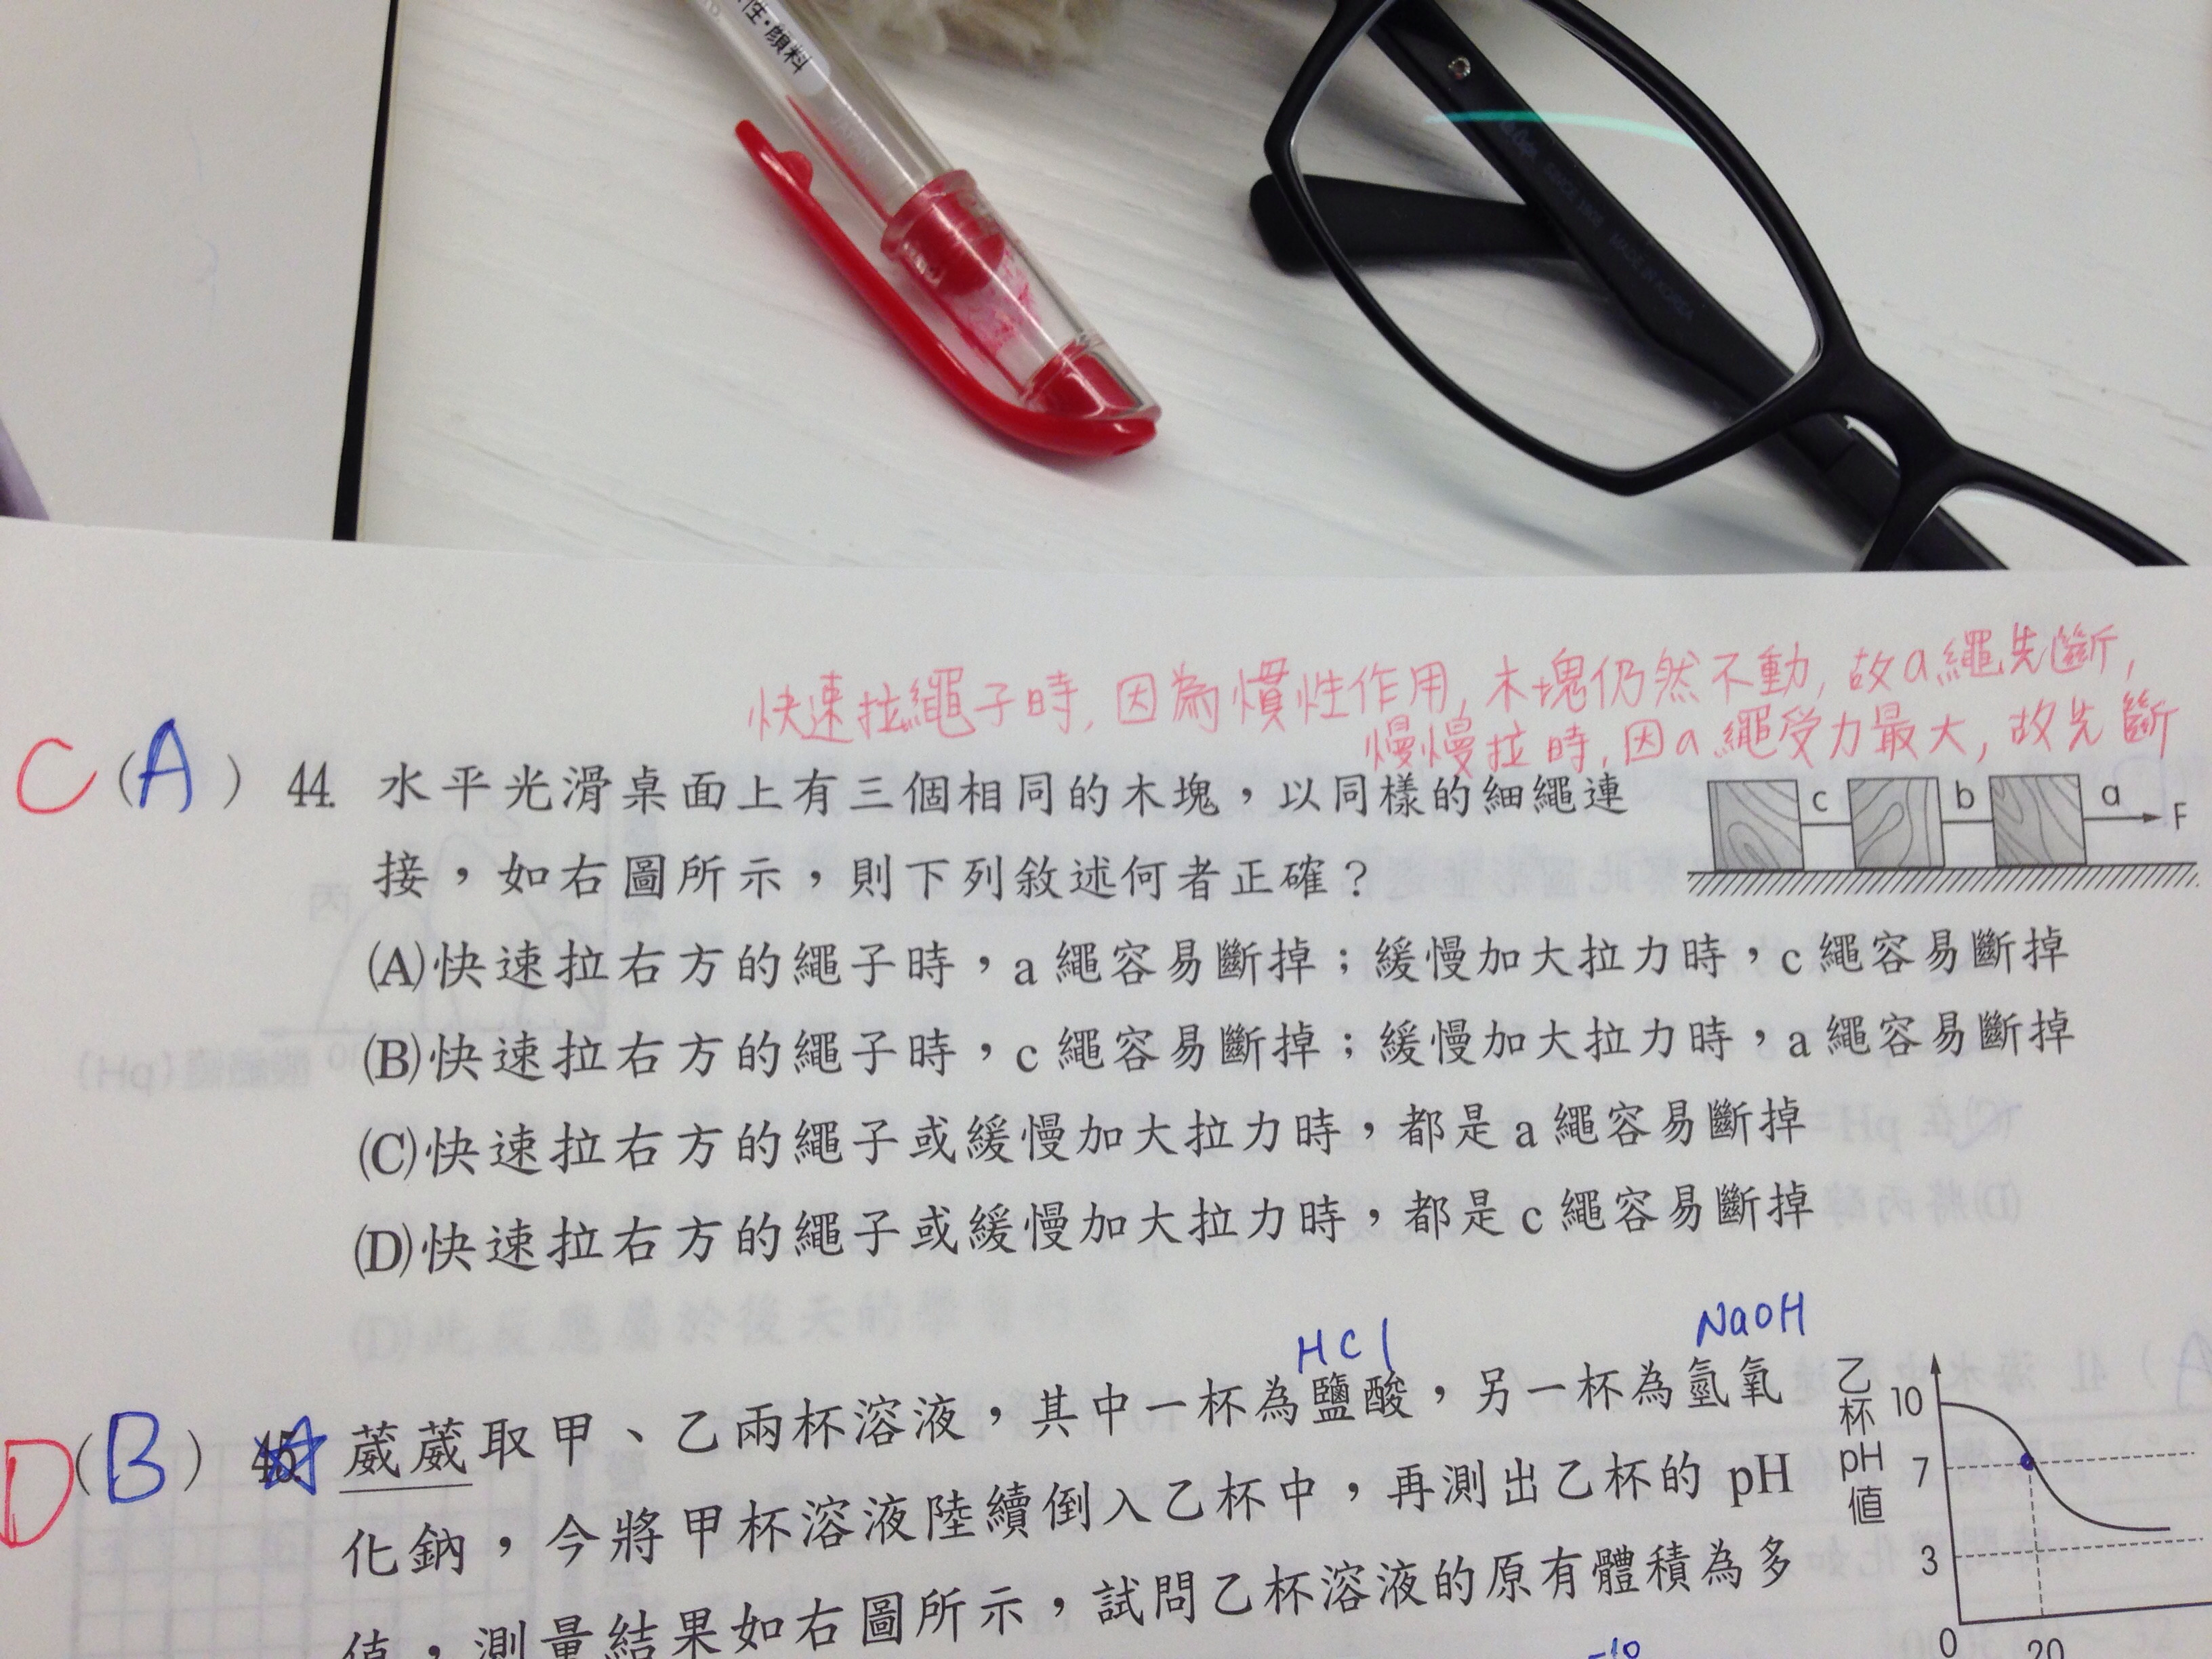 性・顔料
SINCE 1908 MADE IN KOREA
快速拉繩子時,因為慣性作用,木塊仍然不動,故a繩先斷,
慢慢拉時,因a繩受力最大,故先斷
C(A) 44. 水平光滑桌面上有三個相同的木塊，以同樣的細繩連
接，如右圖所示，則下列敘述何者正確？
c b a F
(A)快速拉右方的繩子時，a 繩容易斷掉；緩慢加大拉力時，c 繩容易斷掉
(B)快速拉右方的繩子時，c 繩容易斷掉；緩慢加大拉力時，a 繩容易斷掉
(C)快速拉右方的繩子或緩慢加大拉力時，都是 a 繩容易斷掉
(D)快速拉右方的繩子或緩慢加大拉力時，都是 c 繩容易斷掉
HCl NaOH
D(B) 45. 葳葳取甲、乙兩杯溶液，其中一杯為鹽酸，另一杯為氫氧
化鈉，今將甲杯溶液陸續倒入乙杯中，再測出乙杯的 pH
值，測量結果如右圖所示，試問乙杯溶液的原有體積為多
-10
乙杯pH值
10
7
3
0 20